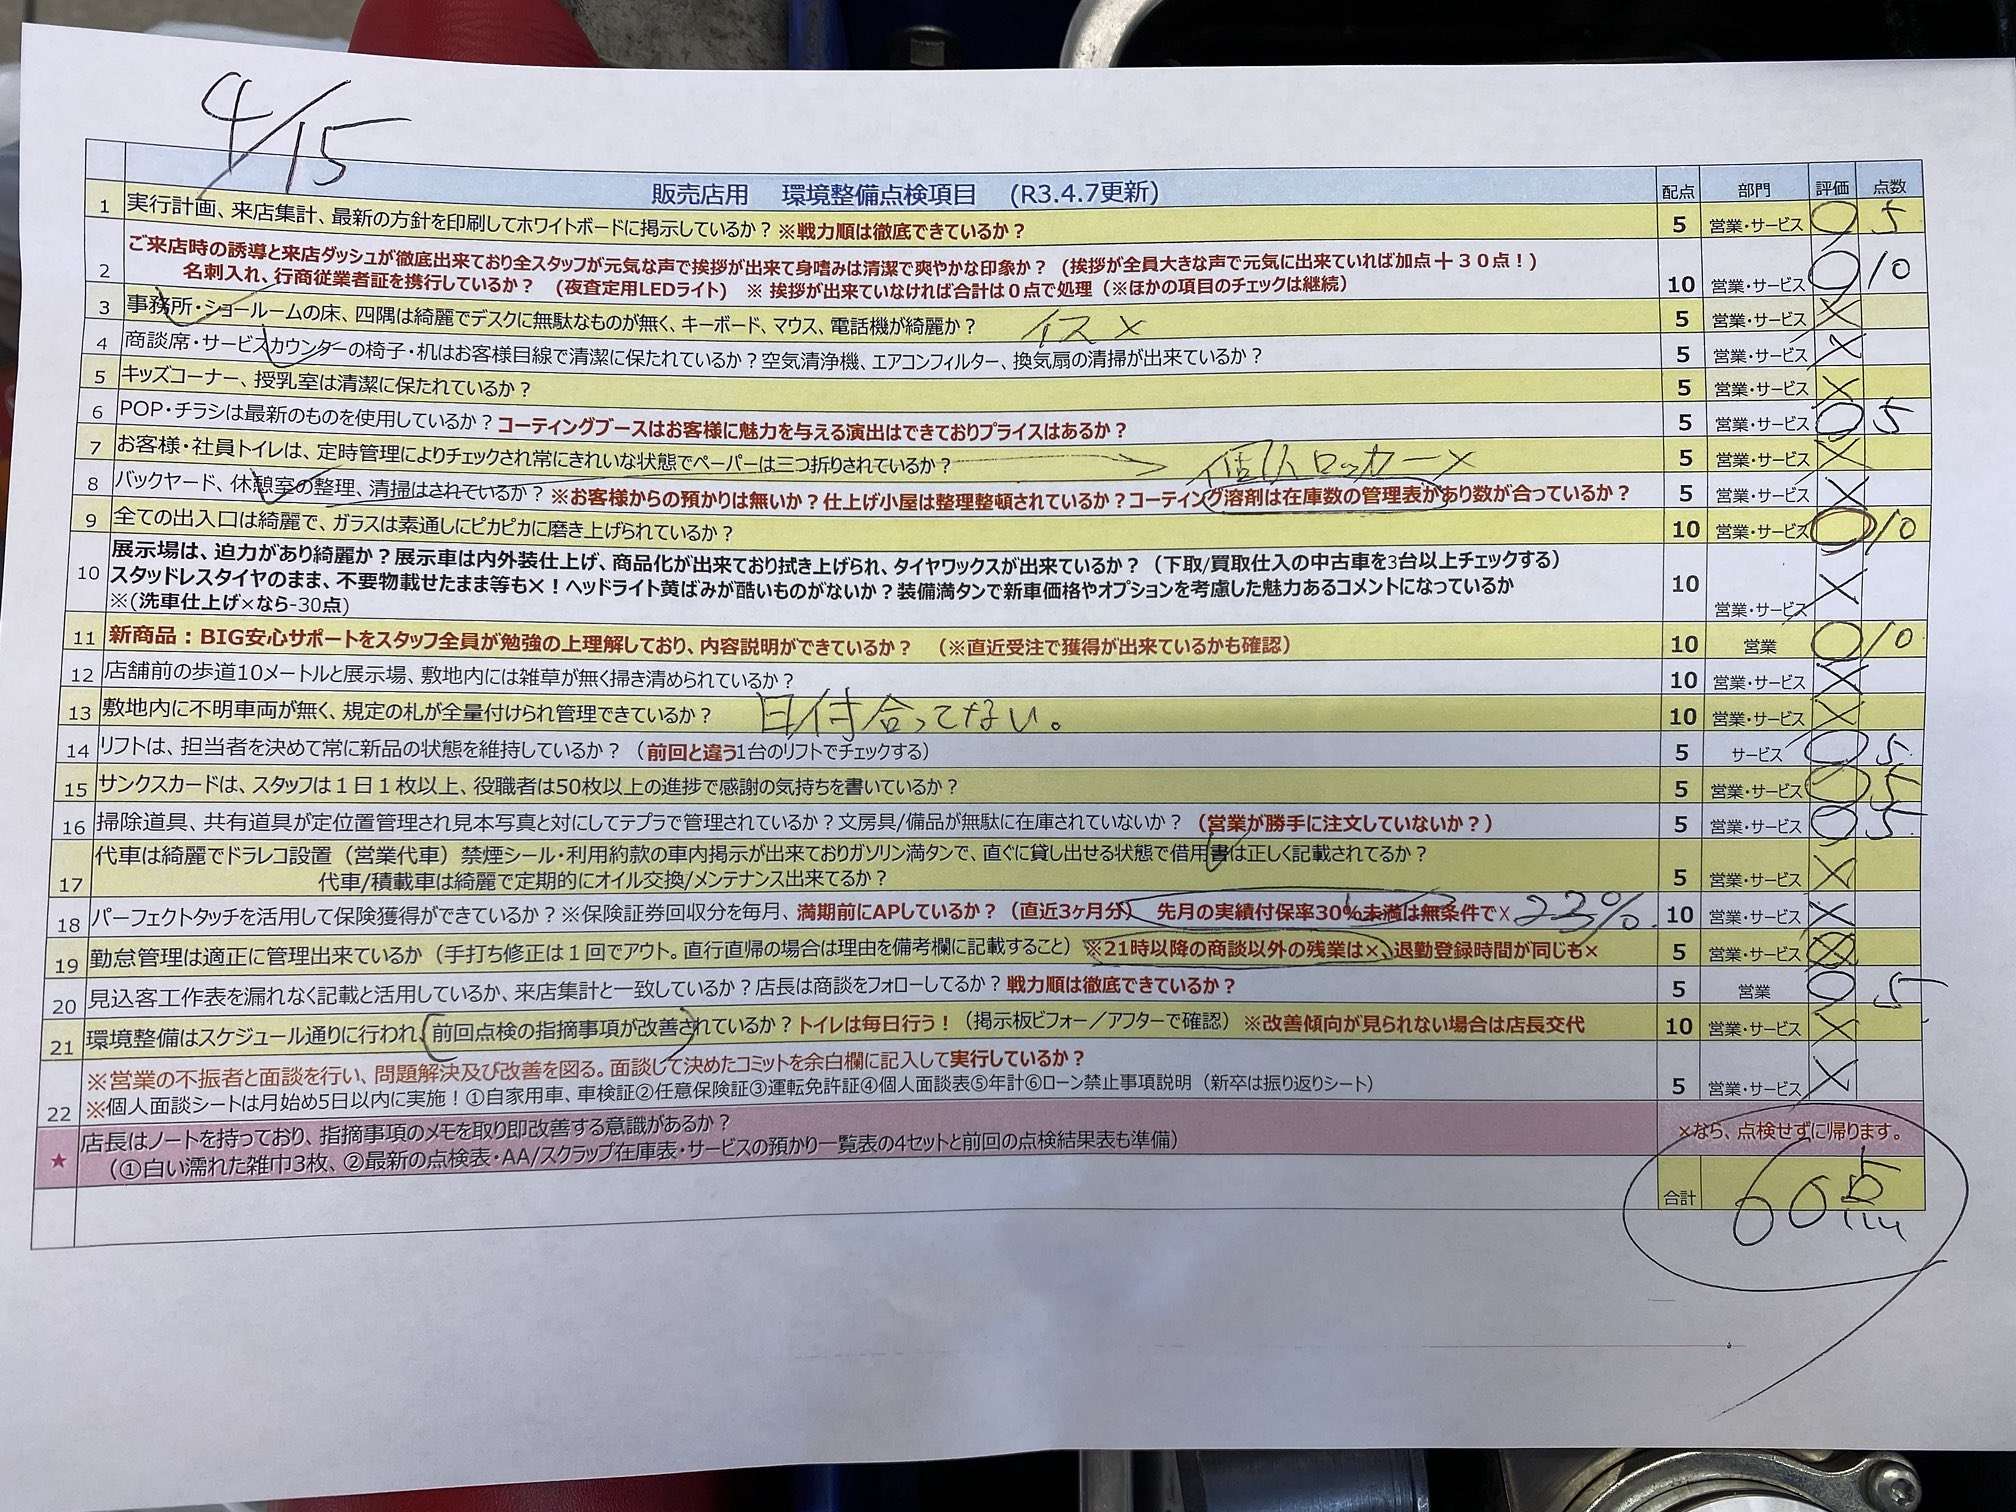 4/15
販売店用　環境整備点検項目　(R3.4.7更新) 配点 部門 評価 点数
1 実行計画、来店集計、最新の方針を印刷してホワイトボードに掲示しているか？※戦力順は徹底できているか？ 5 営業・サービス ○ 5
ご来店時の誘導と来店ダッシュが徹底出来ており全スタッフが元気な声で挨拶が出来て身嗜みは清潔で爽やかな印象か？（挨拶が全員大きな声で元気に出来ていれば加点＋３０点！）
2 名刺入れ、行商従業者証を携行しているか？　（夜査定用LEDライト）　※ 挨拶が出来ていなければ合計は０点で処理（※ほかの項目のチェックは継続） 10 営業・サービス ○ 10
3 事務所・ショールームの床、四隅は綺麗でデスクに無駄なものが無く、キーボード、マウス、電話機が綺麗か？ イス× 5 営業・サービス ×
4 商談席・サービスカウンターの椅子・机はお客様目線で清潔に保たれているか？空気清浄機、エアコンフィルター、換気扇の清掃が出来ているか？ 5 営業・サービス ×
5 キッズコーナー、授乳室は清潔に保たれているか？ 5 営業・サービス ×
6 POP・チラシは最新のものを使用しているか？コーティングブースはお客様に魅力を与える演出はできておりプライスはあるか？ 5 営業・サービス ○ 5
7 お客様・社員トイレは、定時管理によりチェックされ常にきれいな状態でペーパーは三つ折りされているか？ 個人ロッカー× 5 営業・サービス ×
8 バックヤード、休憩室の整理、清掃はされているか？※お客様からの預かりは無いか？仕上げ小屋は整理整頓されているか？コーティング溶剤は在庫数の管理表があり数が合っているか？ 5 営業・サービス ×
9 全ての出入口は綺麗で、ガラスは素通しにピカピカに磨き上げられているか？ 10 営業・サービス ○ 10
展示場は、迫力があり綺麗か？展示車は内外装仕上げ、商品化が出来ており拭き上げられ、タイヤワックスが出来ているか？（下取/買取仕入の中古車を3台以上チェックする）
10 スタッドレスタイヤのまま、不要物載せたまま等も×！ヘッドライト黄ばみが酷いものがないか？装備満タンで新車価格やオプションを考慮した魅力あるコメントになっているか 10
※(洗車仕上げ×なら-30点) 営業・サービス ×
11 新商品：BIG安心サポートをスタッフ全員が勉強の上理解しており、内容説明ができているか？　（※直近受注で獲得が出来ているかも確認） 10 営業 ○ 10
12 店舗前の歩道10メートルと展示場、敷地内には雑草が無く掃き清められているか？ 10 営業・サービス ×
13 敷地内に不明車両が無く、規定の札が全量付けられ管理できているか？ 日付合ってない。 10 営業・サービス ×
14 リフトは、担当者を決めて常に新品の状態を維持しているか？（前回と違う1台のリフトでチェックする） 5 サービス ○ 5
15 サンクスカードは、スタッフは１日１枚以上、役職者は50枚以上の進捗で感謝の気持ちを書いているか？ 5 営業・サービス ○ 5
16 掃除道具、共有道具が定位置管理され見本写真と対にしてテプラで管理されているか？文房具/備品が無駄に在庫されていないか？（営業が勝手に注文していないか？） 5 営業・サービス ○ 5
代車は綺麗でドラレコ設置（営業代車）禁煙シール・利用約款の車内掲示が出来ておりガソリン満タンで、直ぐに貸し出せる状態で借用書は正しく記載されてるか？
17 代車/積載車は綺麗で定期的にオイル交換/メンテナンス出来てるか？ 5 営業・サービス ×
18 パーフェクトタッチを活用して保険獲得ができているか？※保険証券回収分を毎月、満期前にAPしているか？（直近3ヶ月分）　先月の実績付保率30%未満は無条件で× 23%. 10 営業・サービス ×
19 勤怠管理は適正に管理出来ているか（手打ち修正は１回でアウト。直行直帰の場合は理由を備考欄に記載すること）※21時以降の商談以外の残業は×、退勤登録時間が同じも× 5 営業・サービス ×
20 見込客工作表を漏れなく記載と活用しているか、来店集計と一致しているか？店長は商談をフォローしてるか？戦力順は徹底できているか？ 5 営業 ○ 5
21 環境整備はスケジュール通りに行われ、前回点検の指摘事項が改善されているか？トイレは毎日行う！（掲示板ビフォー／アフターで確認）※改善傾向が見られない場合は店長交代 10 営業・サービス ×
※営業の不振者と面談を行い、問題解決及び改善を図る。面談して決めたコミットを余白欄に記入して実行しているか？
22 ※個人面談シートは月始め5日以内に実施！①自家用車、車検証②任意保険証③運転免許証④個人面談表⑤年計⑥ローン禁止事項説明（新卒は振り返りシート） 5 営業・サービス ×
店長はノートを持っており、指摘事項のメモを取り即改善する意識があるか？ ×なら、点検せずに帰ります。
★ （①白い濡れた雑巾3枚、②最新の点検表・AA/スクラップ在庫表・サービスの預かり一覧表の4セットと前回の点検結果表も準備）
合計 60点